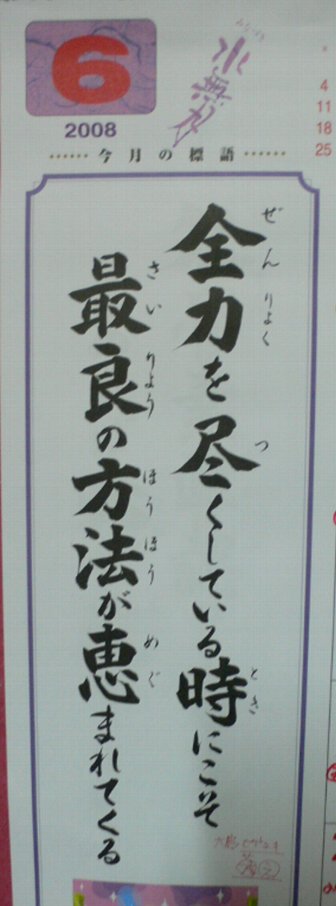 6
水無月
2008
今月の標語
4
11
18
25
全力を尽くしている時にこそ
ぜんりょく
つ
とき
最良の方法が恵まれてくる
さいりょう
ほうほう
めぐ